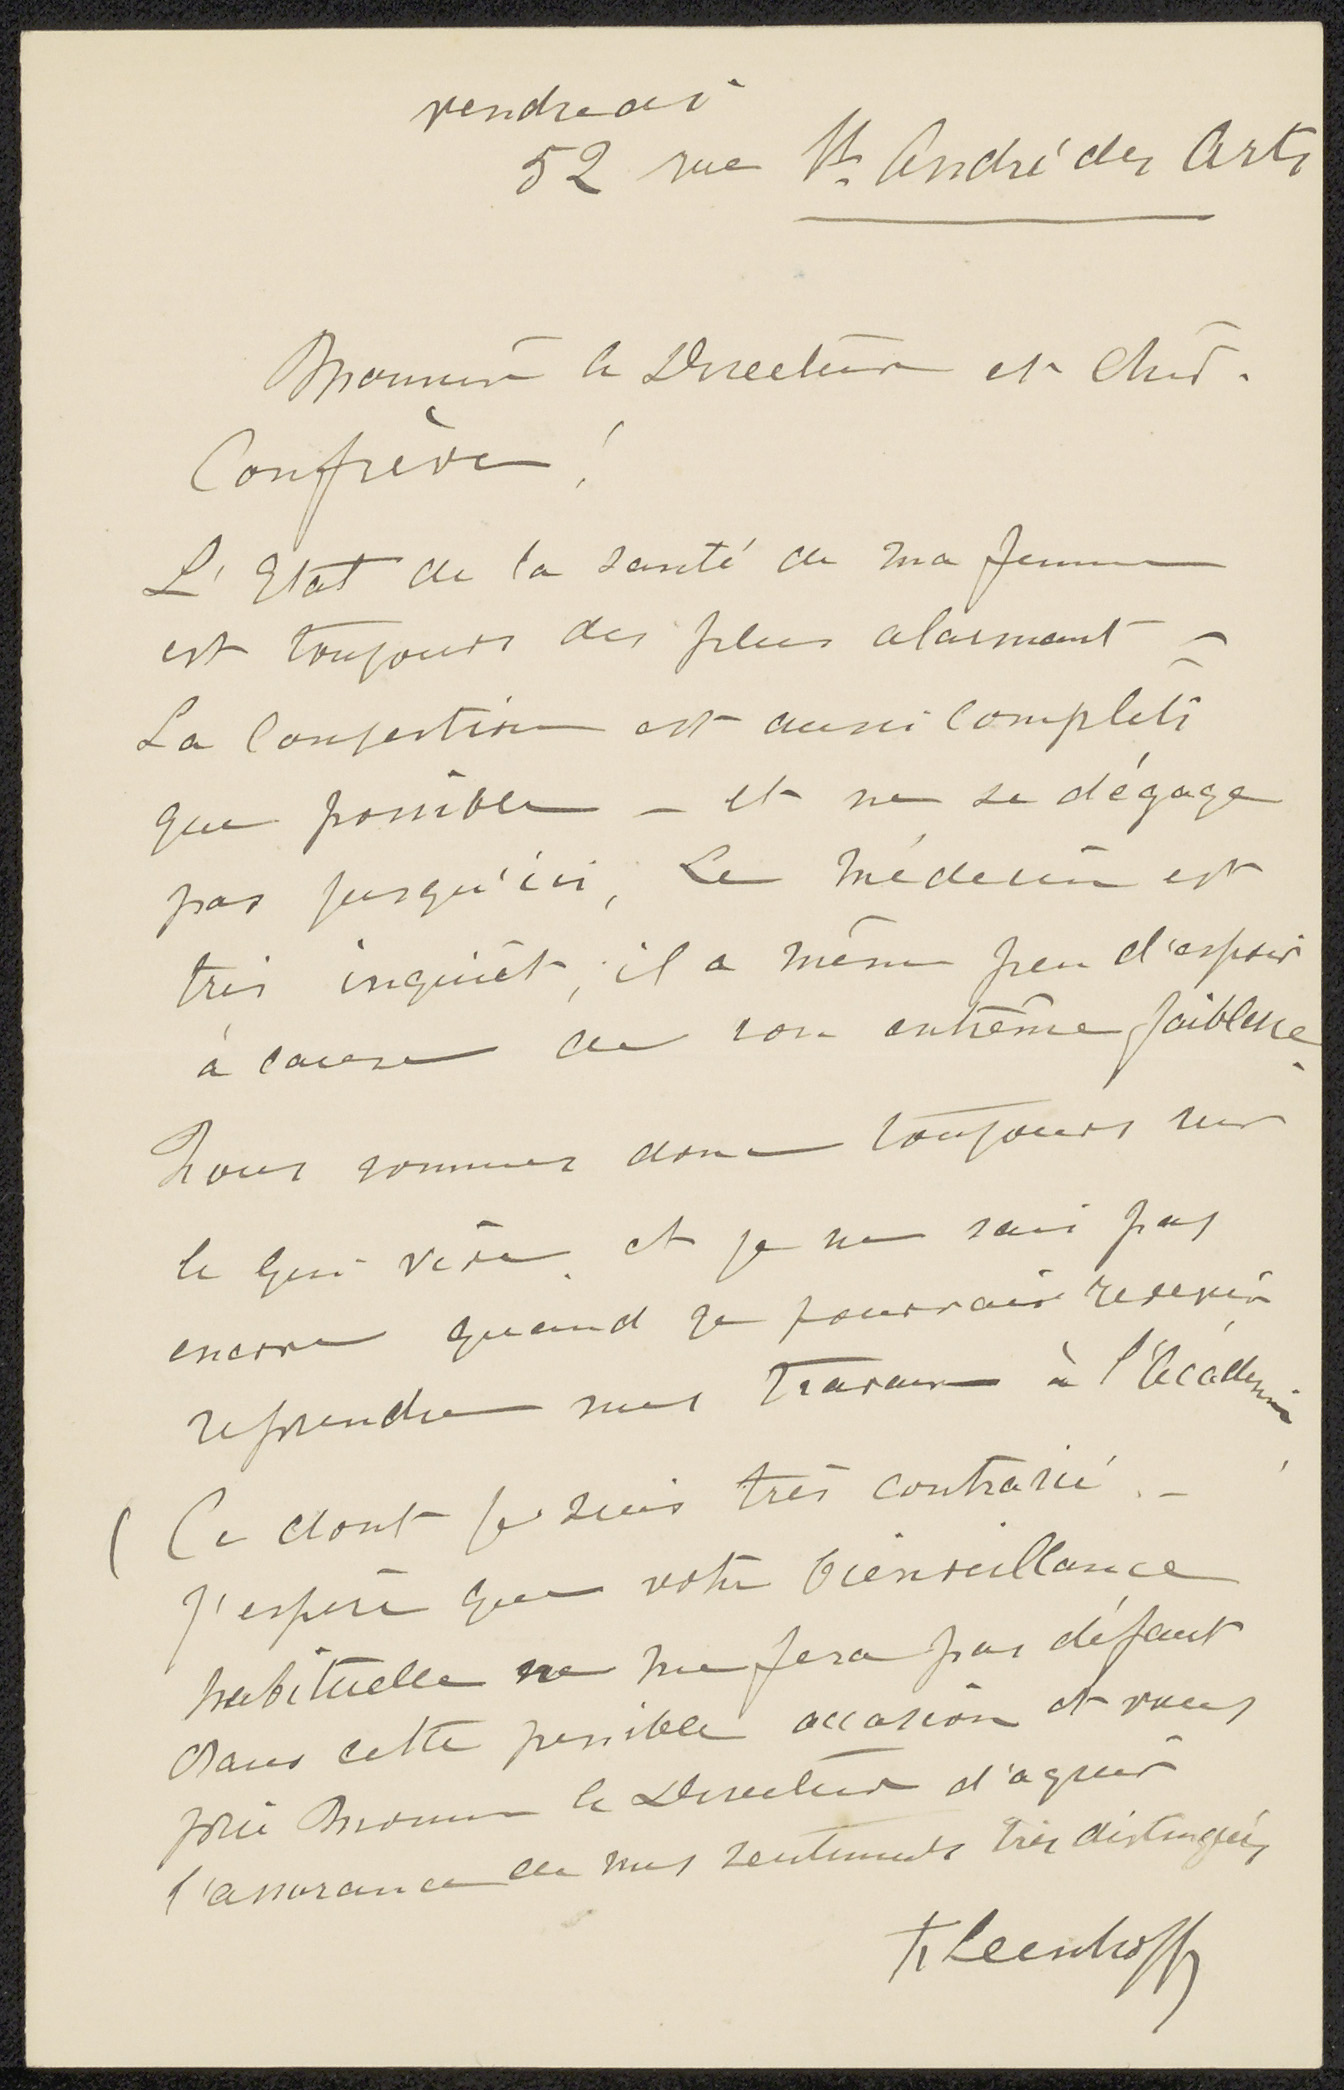 vendredi
52 rue St. André des Arts
Monsieur le Directeur et Cher
Confrère!
L'Etat de la santé de ma femme
est toujours des plus alarmant –
La Congestion est aussi complète
que possible – et ne se dégage
pas jusqu'ici, Le médecin est
très inquièt, il a même peu d'espoir
à cause de son extrême faiblesse.
Nous sommes donc toujours sur
le qui vive. et je ne sais pas
encore quand je pourrais revenir
reprendre mes travaux à l'Académie
(Ce dont je suis très contrarié. –
J'espère que votre bienveillance
habituelle ne me fera pas défaut
dans cette penible occasion et vous
prie Monsieur le Directeur d'agréer
l'assurance de mes sentiments très distingués
F. Leenhoff